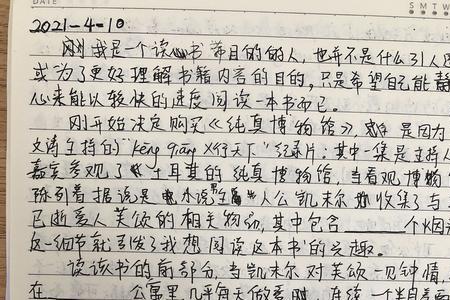 DATE
S M T W
2021-4-10
刚我是一个读书目的的人,也并不是什么引人
或为了更好理解书籍内容的目的,只是希望自己能静
心来能以较快的速度阅读一本书而已。
刚开始决定购买《纯真博物馆》,是因为
文涛主持的"行天下"纪录片:其中一集是主持人
嘉宾参观了土耳其的纯真博物馆,当看观博物
陈列着据说是小说人公凯末尔收集了与
已断离人芙颂的相关物品,其中包含____个烟
这一细节就引发了我想阅读这本书的兴趣。
读该书的前部分,当凯末尔对芙颂一见钟情,
在____公寓里几乎每天做爱时,连续一个半月